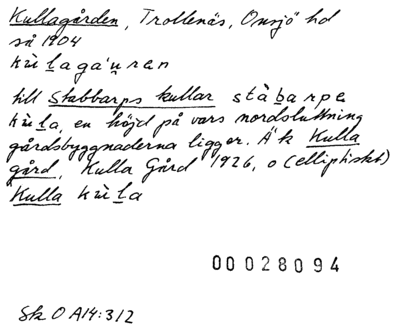 Kullagården, Trollenäs, Onsjö hd
så 1904
kùḻaga'u̱ren
till Stabbarps kullar stàḇarpe
kùḻa, en höjd på vars nordsluttning
gårdsbyggnaderna ligger. Äk Kulla
gård, Kulla Gård 1926, o (elliptiskt)
Kulla kùḻa
00028094
Sk O A14:312